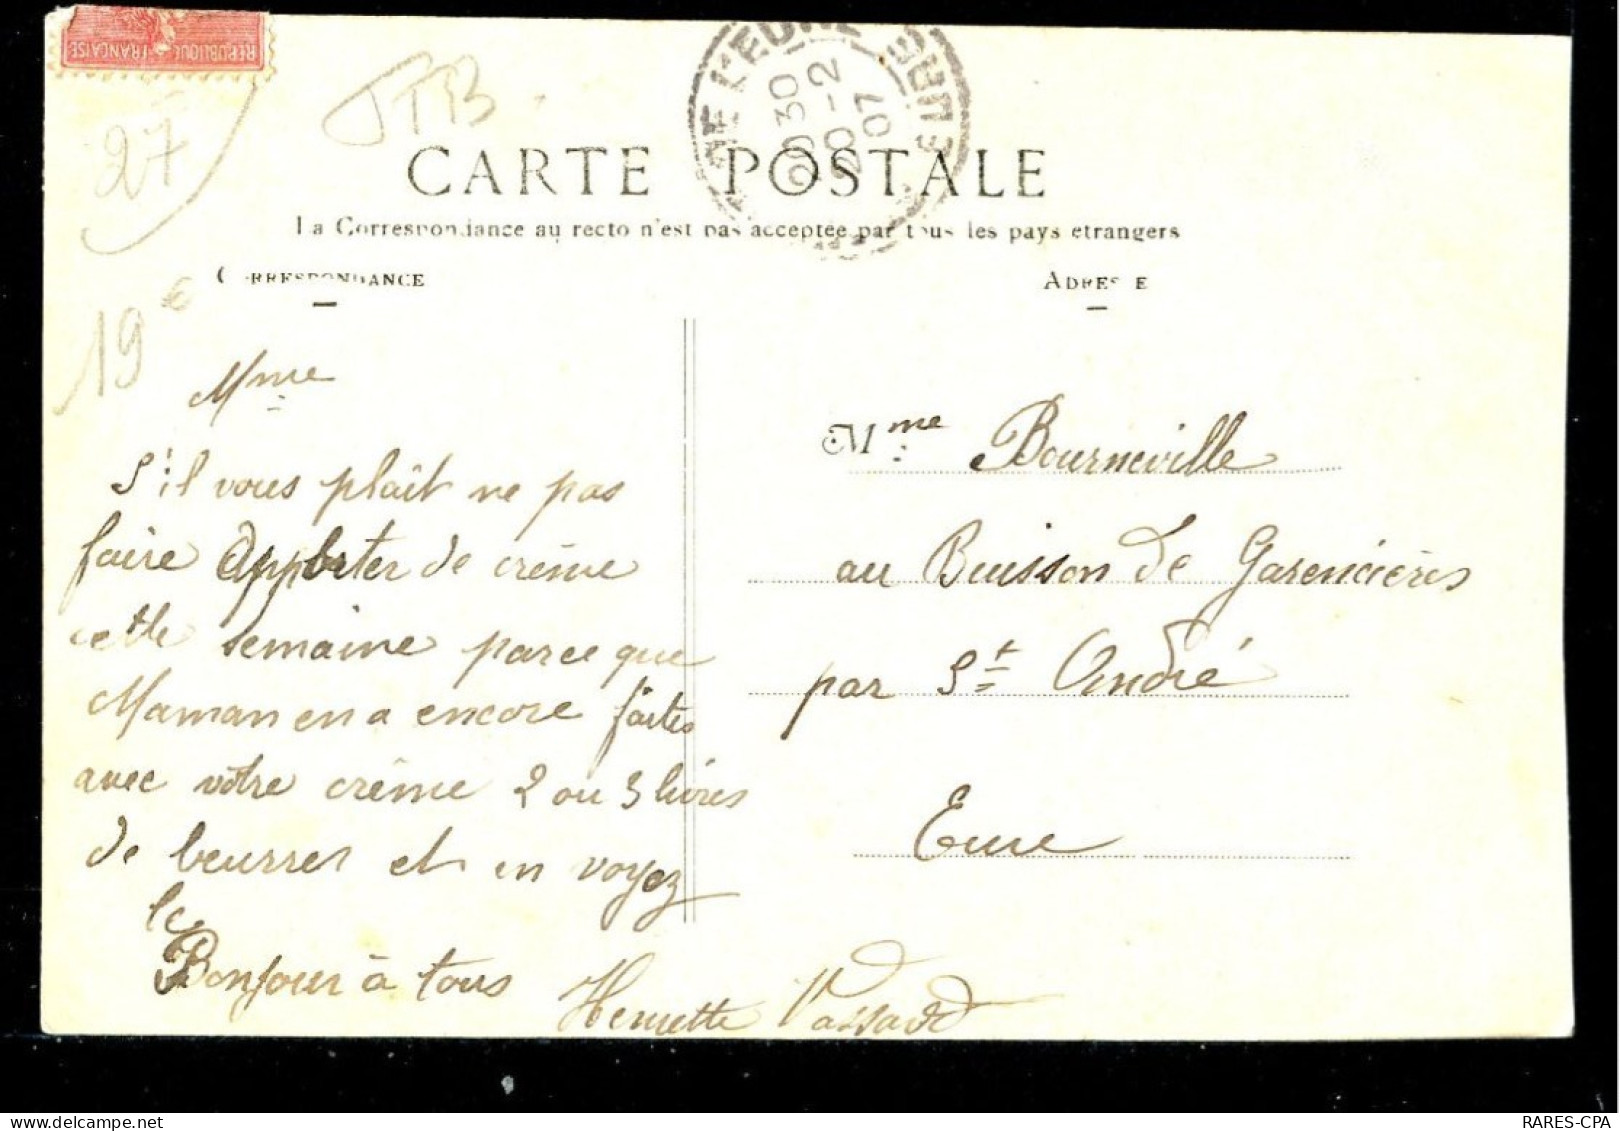 REPUBLIQUE FRANÇAISE
27
TTB
DE L'EURE
EURE
20 30
20 - 2
07
CARTE POSTALE
La Correspondance au recto n'est pas acceptée par tous les pays étrangers
CORRESPONDANCE
ADRESSE
19 €
Mme
S'il vous plaît ne pas
faire Apporter de crême
cette semaine parce que
Maman en a encore faites
avec votre crême 2 ou 3 livres
de beurrer et en voyez
le
Bonjour à tous
Henriette Vassard
Mme Bourneville
au Buisson de Garencières
par St André
Eure
RARES-CPA